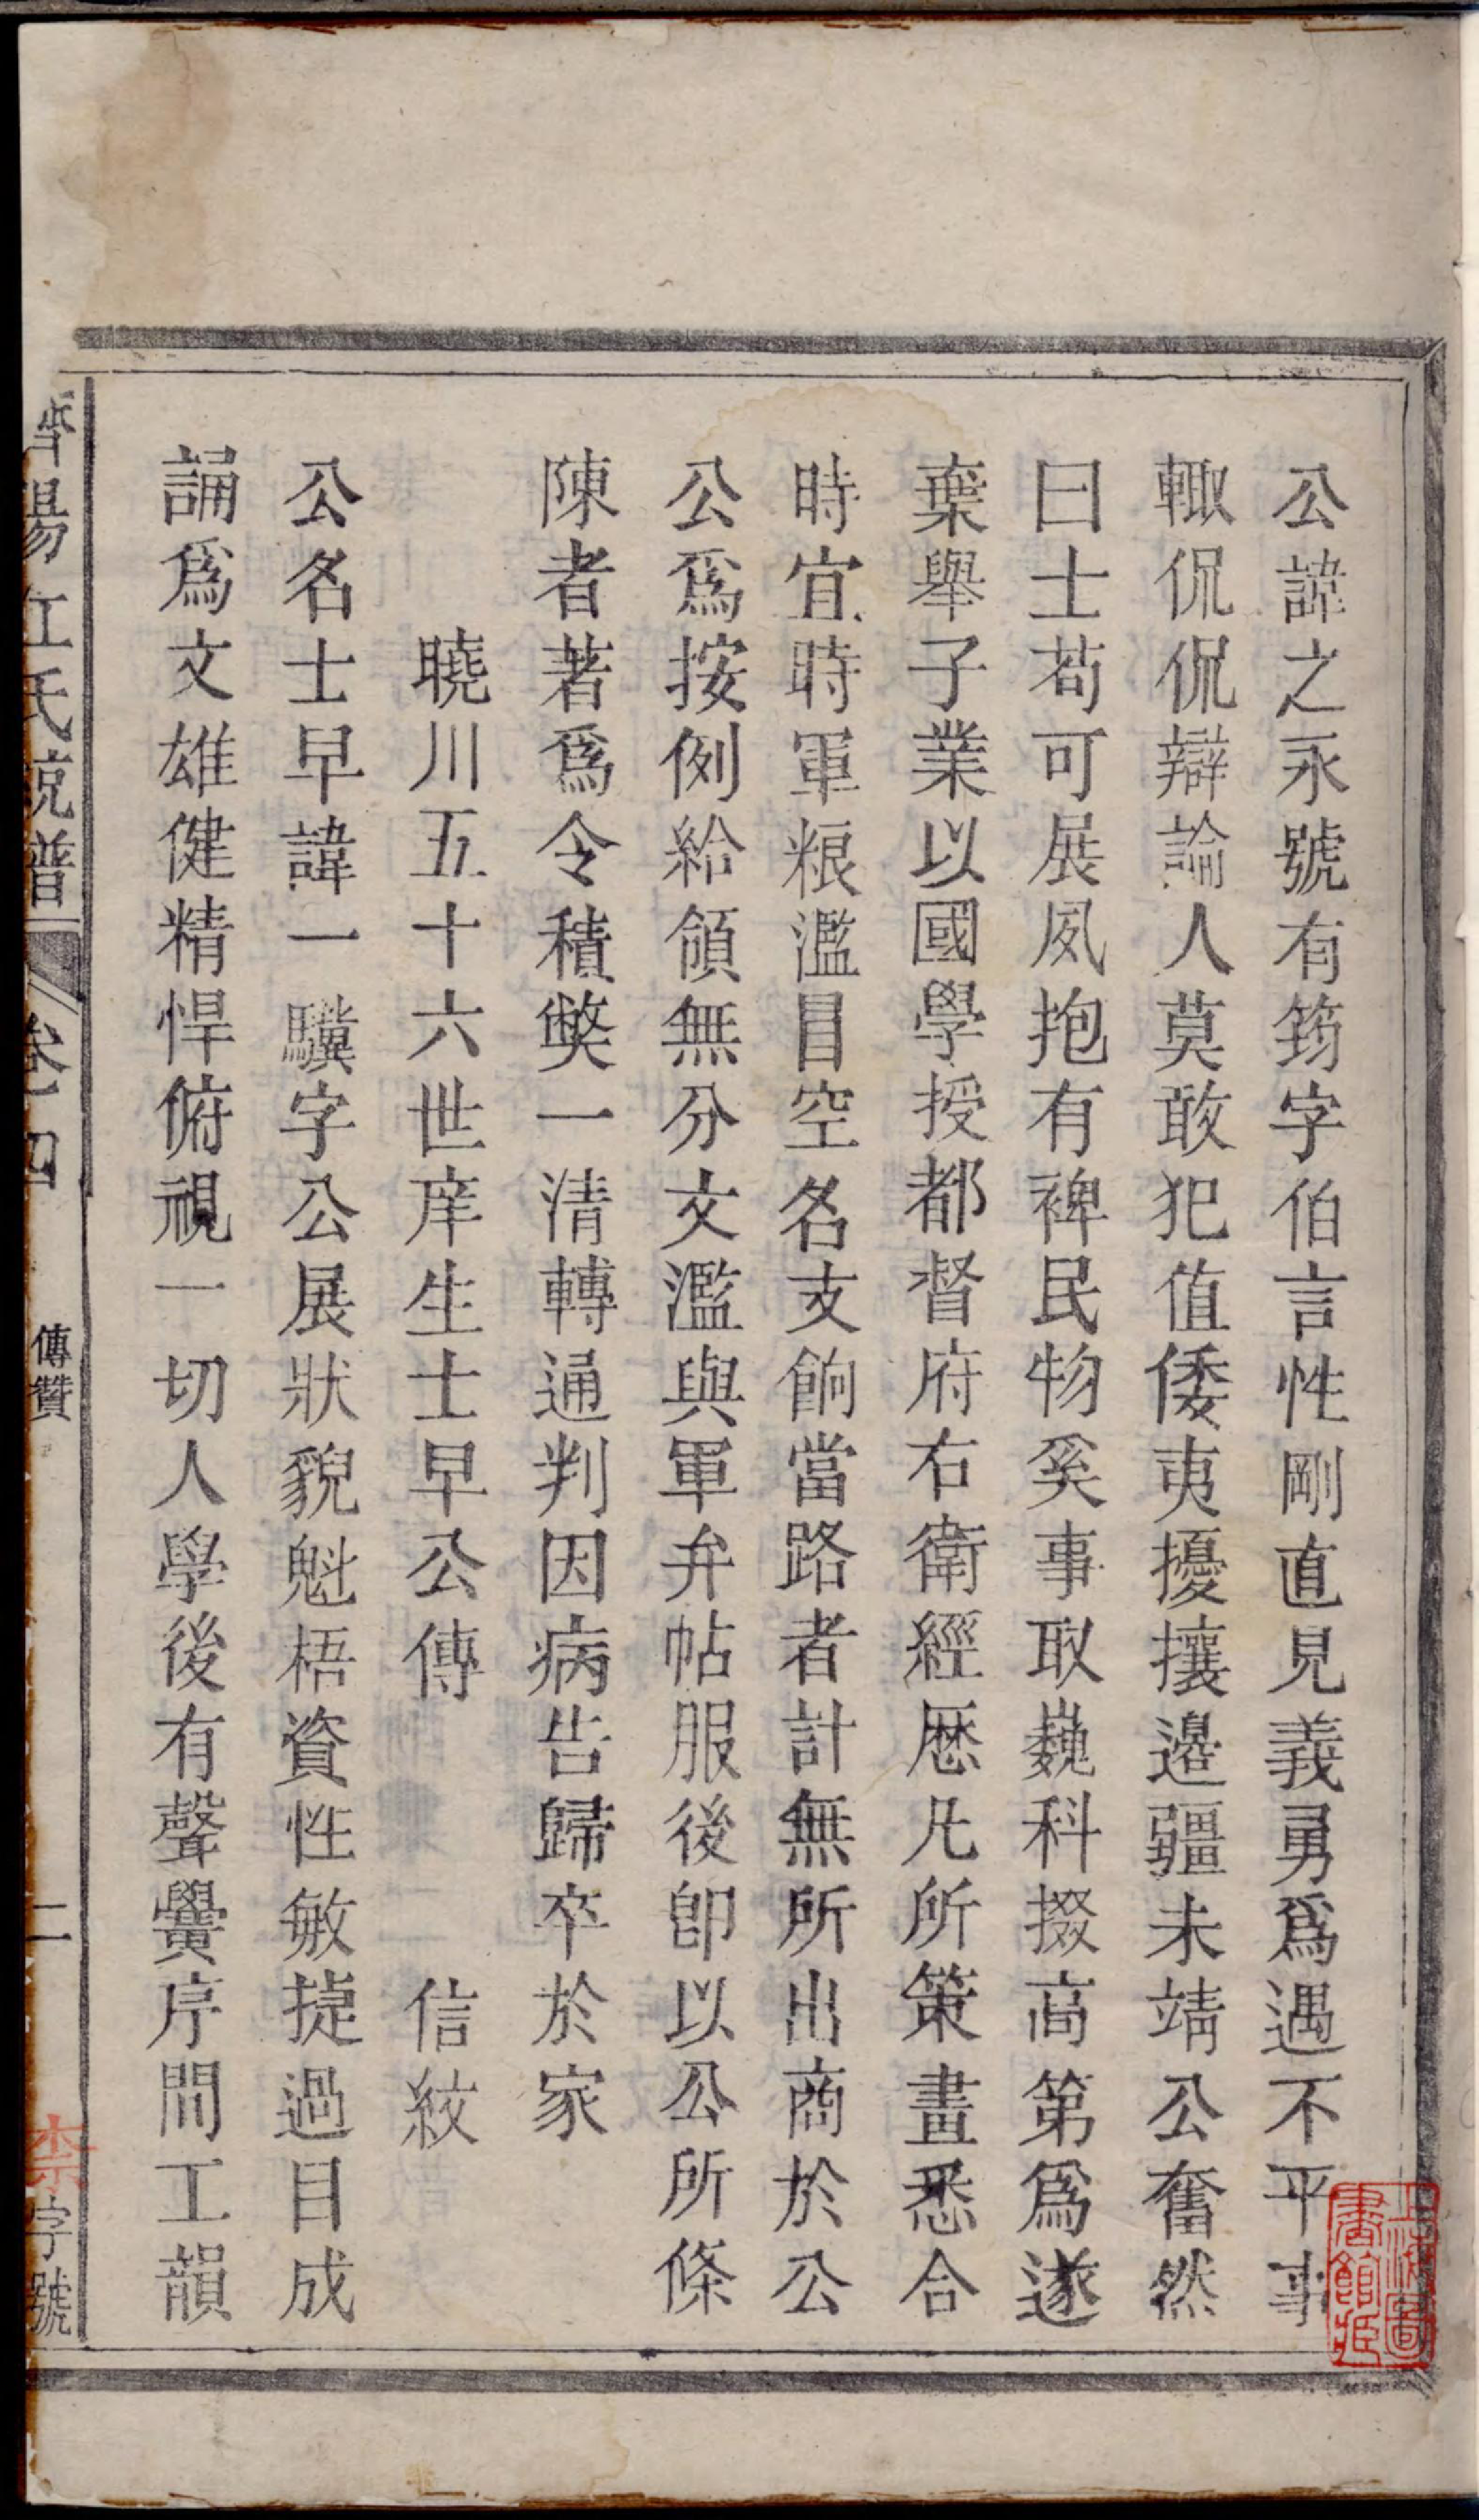 公諱之永號有筠字伯言性剛直見義勇爲遇不平事
輙侃侃辯論人莫敢犯值倭夷擾攘邉疆未靖公奮然
曰士茍可展夙抱有裨民物奚事取巍科掇高第爲遂
棄舉子業以國學授都督府右衛經歷凡所策畫悉合
時宜時軍粮濫冒空名支餉當路者計無所出商於公
公爲按例給領無分文濫與軍弁帖服後卽以公所條
陳者著爲令積獘一清轉通判因病告歸卒於家
曉川五十六世庠生士早公傳 信紋
公名士早諱一驥字公展狀貌魁梧資性敏捷過目成
誦爲文雄健精悍俯視一切人學後有聲黌序間工韻
濟陽江氏統譜 卷四 傳贊 二 字號
上海圖書館藏